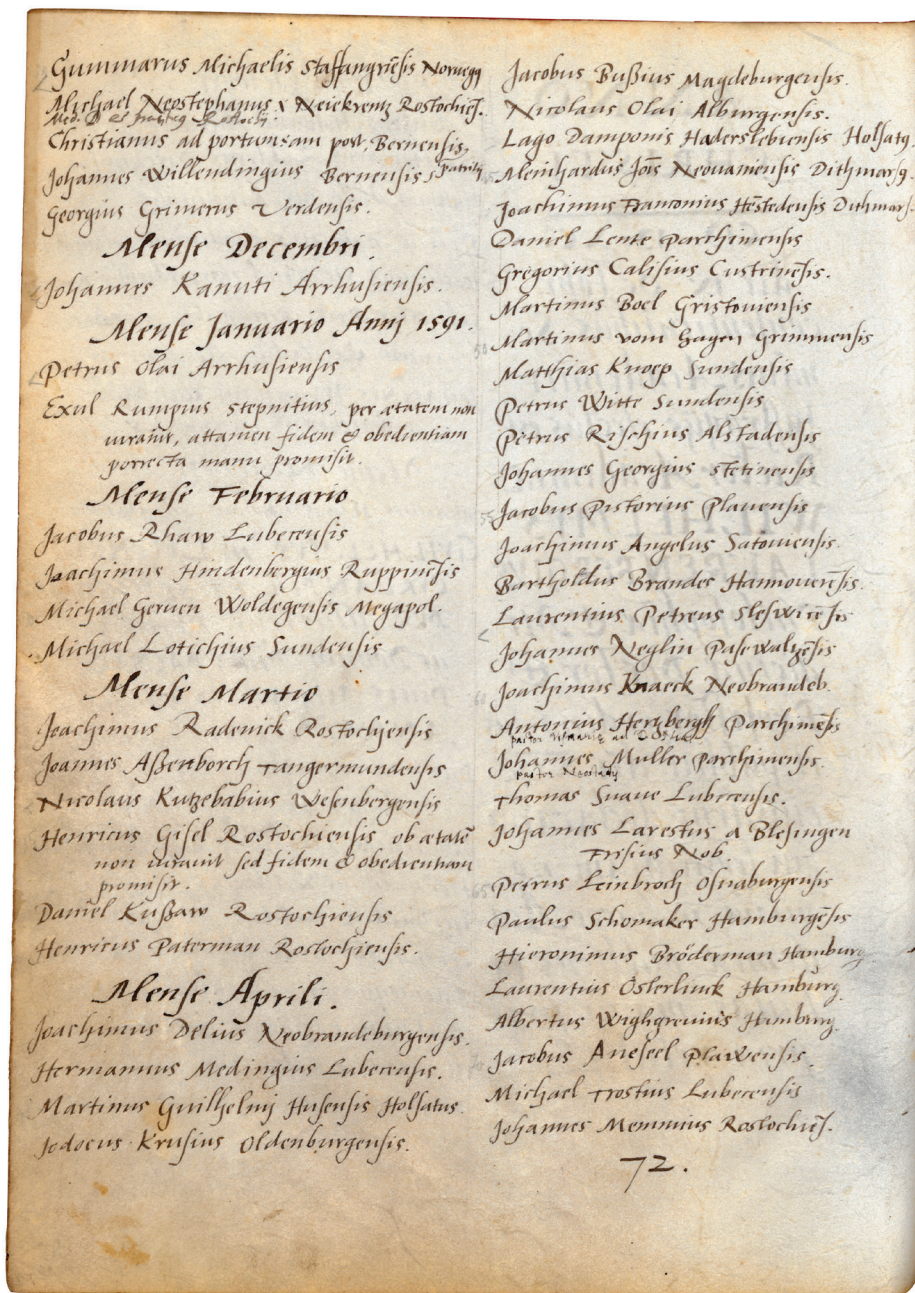 Gummarus Michaelis Staffangriēsis Norueg
Michael Neostephanus Neickrentz Rostochiēs.
Christianus ad portum post, Bernensis,
Johannes Willendingius Bernensis, patritij
Georgius Grimerus Verdensis.
Mense Decembri.
Johannes Kanuti Arrhusiensis.
Mense Januario Annj 1591.
Petrus Olai Arrhusiensis
Exul Rumpius Stepnitius, per ætatem non
iurauit, attamen fidem & obedientiam
porrecta manu promisit.
Mense Februario
Jacobus Rhaw Lubecensis
Joachimus Hindenbergius Ruppinēsis
Michael Geruen Woldegensis Megapol.
Michael Lotichius Sundensis
Mense Martio
Joachimus Radenick Rostochiensis
Joannes Aßenborch Tangermundensis
Nicolaus Kutzebabius Wesenbergensis
Henricus Gisel Rostochiensis ob ætatē
non iurauit sed fidem & obedientiam
promisit.
Daniel Kußaw Rostochiensis
Henricus Paterman Rostochiensis.
Mense Aprili.
Joachimus Delius Neobrandeburgensis.
Hermannus Medingius Lubecensis.
Martinus Guilhelmj Husensis Holsatus.
Jodocus Krusius Oldenburgensis.
Jacobus Bußius Magdeburgensis.
Nicolaus Olai Alburgensis.
Lago Damponis Haderslebiensis Holsatg.
Meinhardus Jōis Neouaniensis Dithmarsg.
Joachimus Franconius Hēstedensis Dithmars.
Daniel Lente Parchimensis
Gregorius Calisius Custrinēsis.
Martinus Boel Gristouiensis
Martinus vom Hagen Grimmensis
Matthias Knoep Sundensis
Petrus Witte Sundensis
Petrus Rischius Alstadensis
Johannes Georgius Stetinensis
Jacobus Pistorius Plauensis
Joachimus Angelus Satouiensis.
Bartholdus Brandes Hannouerēsis.
Laurentius Petreus Sleswicēsis
Johannes Neglin Pasewalgēsis
Joachimus Knaeck Neobrandeb.
Antonius Hertzbergh Parchimēsis
Johannes Muller Parchimensis.
pastor
Thomas Suaue Lubecensis.
Johannes Larestus a Blesingen
Frisius Nob.
Petrus Leinbroch Osnaburgensis
Paulus Schomaker Hamburgēsis
Hieronimus Bröderman Hamburg.
Laurentius Osterlinck Hamburg.
Albertus Wighgreuius Hamburg.
Jacobus Aneseel Plawensis
Michael Trostius Lubecensis
Johannes Memmius Rostochiēs.
72.